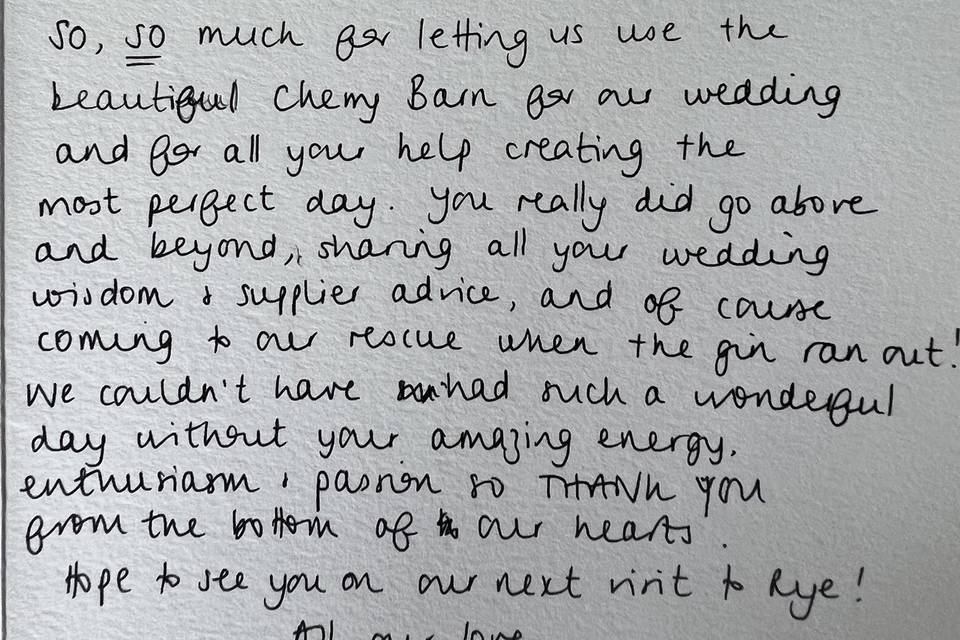 So, so much for letting us use the
beautiful Cherry Barn for our wedding
and for all your help creating the
most perfect day. You really did go above
and beyond, sharing all your wedding
wisdom & supplier advice, and of course
coming to our rescue when the gin ran out!
We couldn't have had such a wonderful
day without your amazing energy,
enthusiasm & passion so THANK YOU
from the bottom of our hearts.
Hope to see you on our next visit to Rye!
All our love